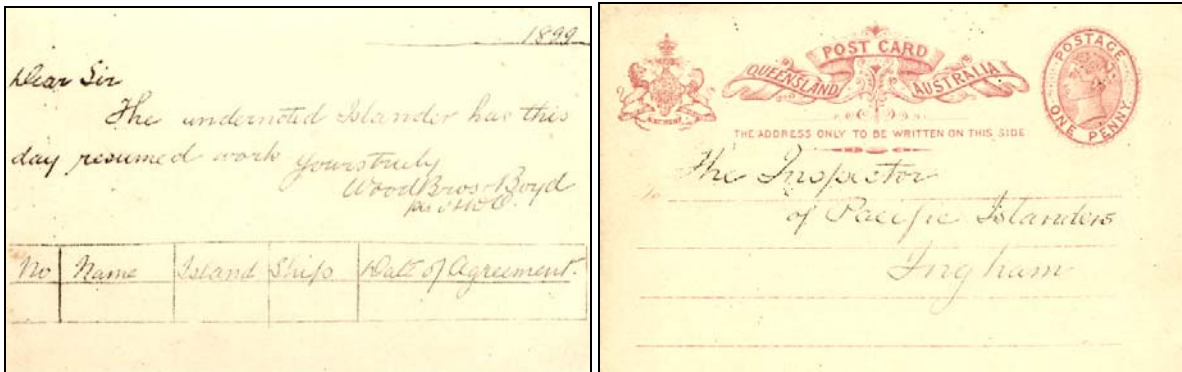 1899
Dear Sir
The undernoted Islander has this
day resumed work Yours truly
Wood Bros & Boyd
No Name Island Ship Date of Agreement.
POST CARD
QUEENSLAND AUSTRALIA
POSTAGE
ONE PENNY
THE ADDRESS ONLY TO BE WRITTEN ON THIS SIDE
To The Inspector
of Pacific Islanders
Ingham